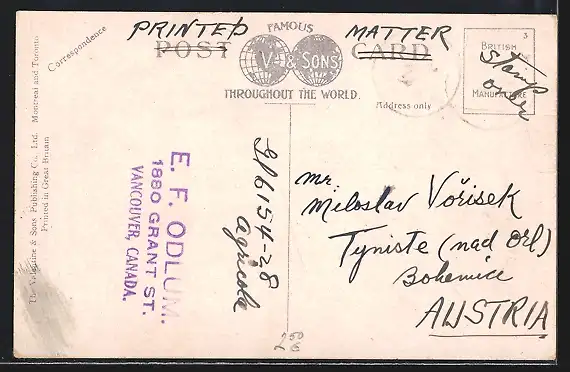 PRINTED MATTER
FAMOUS
POST V. & SONS CARD
THROUGHOUT THE WORLD.
Correspondence
Address only
3
BRITISH
MANUFACTURE
Stamp
over
The Valentine & Sons Publishing Co., Ltd. Montreal and Toronto
Printed in Great Britain
E. F. ODLUM.
1880 GRANT ST.
VANCOUVER, CANADA.
6154-28
Agricola
Mr.
Miloslav Vořisek
Tyniste (nad Orl)
Bohemice
AUSTRIA
2 50
€